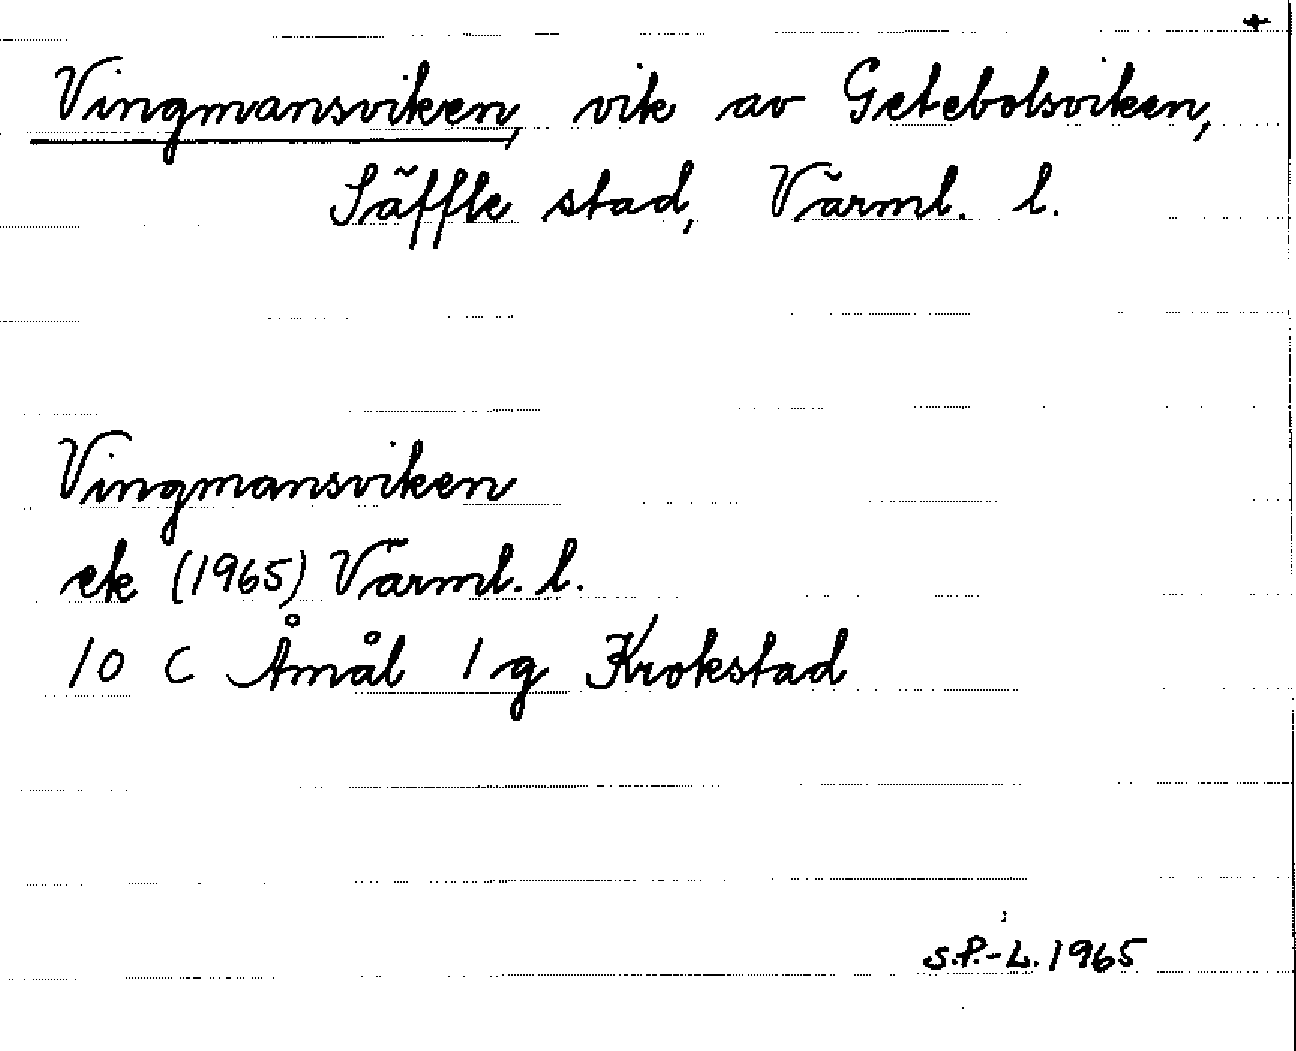 +
Vingmansviken, vik av Getebolsviken,
Säffle stad, Värml. l.
Vingmansviken
ek (1965) Värml. l.
10 C Åmål 1 g Krokstad
S.P.-L. 1965